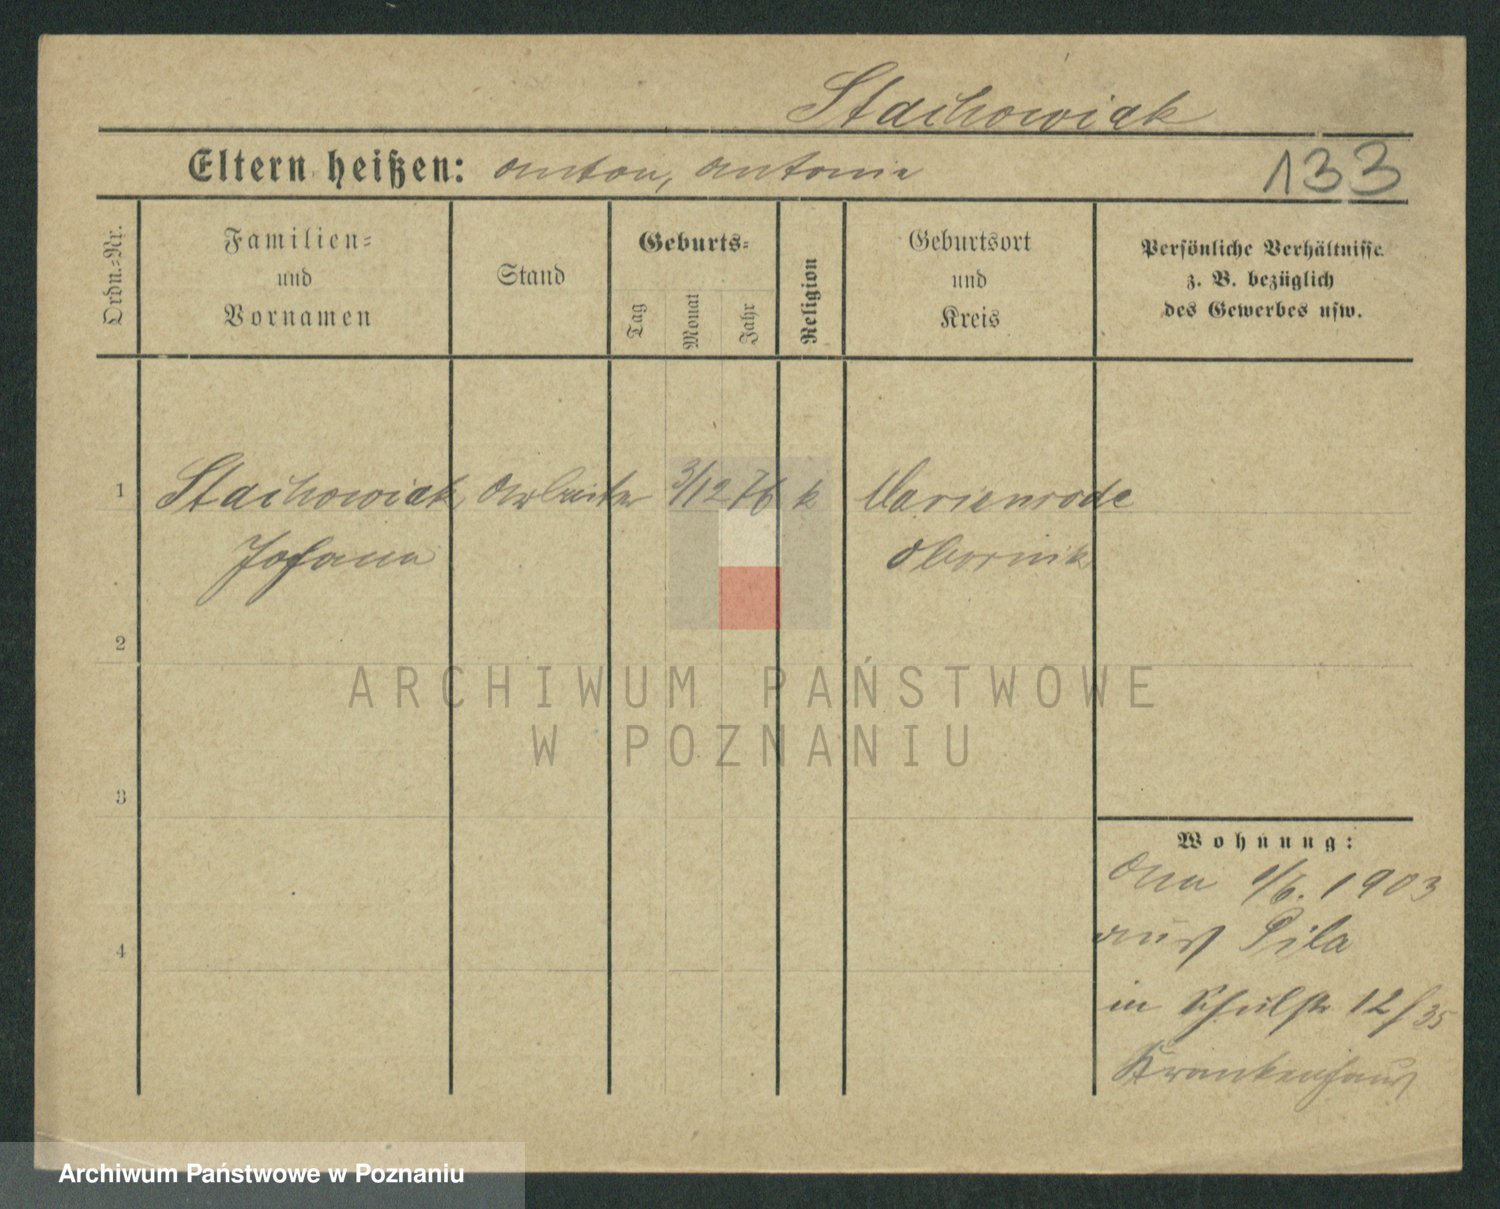 Stachowiak
Eltern heißen: Anton, Antonie
133
Ordn.-Nr.
Familien-
und
Vornamen
Stand
Geburts-
Tag
Monat
Jahr
Religion
Geburtsort
und
Kreis
Persönliche Verhältnisse
z. B. bezüglich
des Gewerbes usw.
1
Stachowiak, Arbeiter 3/12 76 k Marienrode
Johann Obornik
2
ARCHIWUM PAŃSTWOWE
W POZNANIU
3
Wohnung:
1/6. 1903
aus Pila
4
in Schulstr 12/35
Krankenhaus
Archiwum Państwowe w Poznaniu